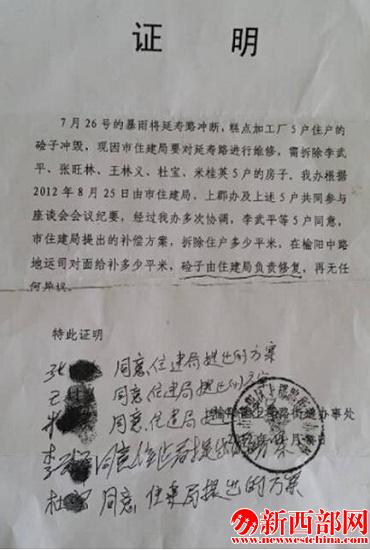 证 明
7月26号的暴雨将延寿路冲断，糕点加工厂5户住户的
硷子冲毁，现因市住建局要对延寿路进行维修，需拆除李武
平、张旺林、王林义、杜宝、米桂英5户的房子。我办根据
2012年8月25日由市住建局、上郡办及上述5户共同参与
座谈会会议纪要，经过我办多次协调，李武平等5户同意，
市住建局提出的补偿方案，拆除住户多少平米，在榆阳中路
地运司对面给补多少平米，硷子由住建局负责修复，再无任
何异议。
特此证明
张 同意住建局提出的方案
同意住建局提出的方案
同意住建局提出的方案
街道办事处
李 同意住建局提出 方案
月
杜 同意住建局提出的方案
新西部网
www.newestchina.com